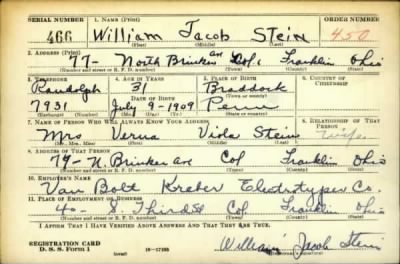 SERIAL NUMBER 1. NAME (Print) ORDER NUMBER
466 William Jacob Stein 450
(First) (Middle) (Last)
2. ADDRESS (Print)
77- North Brinker Ave Col. Franklin Ohio
(Number and street or R. F. D. number) (Town) (County) (State)
3. TELEPHONE 4. AGE IN YEARS 5. PLACE OF BIRTH 6. COUNTRY OF CITIZENSHIP
Randolph 31 Braddock
DATE OF BIRTH (Town or county)
7931 July 9-1909 Penn
(Exchange) (Number) (Mo.) (Day) (Yr.) (State or country)
7. NAME OF PERSON WHO WILL ALWAYS KNOW YOUR ADDRESS RELATIONSHIP OF THAT PERSON
Mrs Verna Viola Stein Wife
(Mr., Mrs., Miss) (First) (Middle) (Last)
8. ADDRESS OF THAT PERSON
77- N. Brinker Ave Col Franklin Ohio
(Number and street or R. F. D. number) (Town) (County) (State)
10. EMPLOYER'S NAME
Van Bolt Kreber Electrotype Co.
11. PLACE OF EMPLOYMENT OR BUSINESS
40- S. Third St Col. Franklin Ohio
(Number and street or R. F. D. number) (Town) (County) (State)
I AFFIRM THAT I HAVE VERIFIED ABOVE ANSWERS AND THAT THEY ARE TRUE.
REGISTRATION CARD
D. S. S. Form 1 16-17105 William Jacob Stein